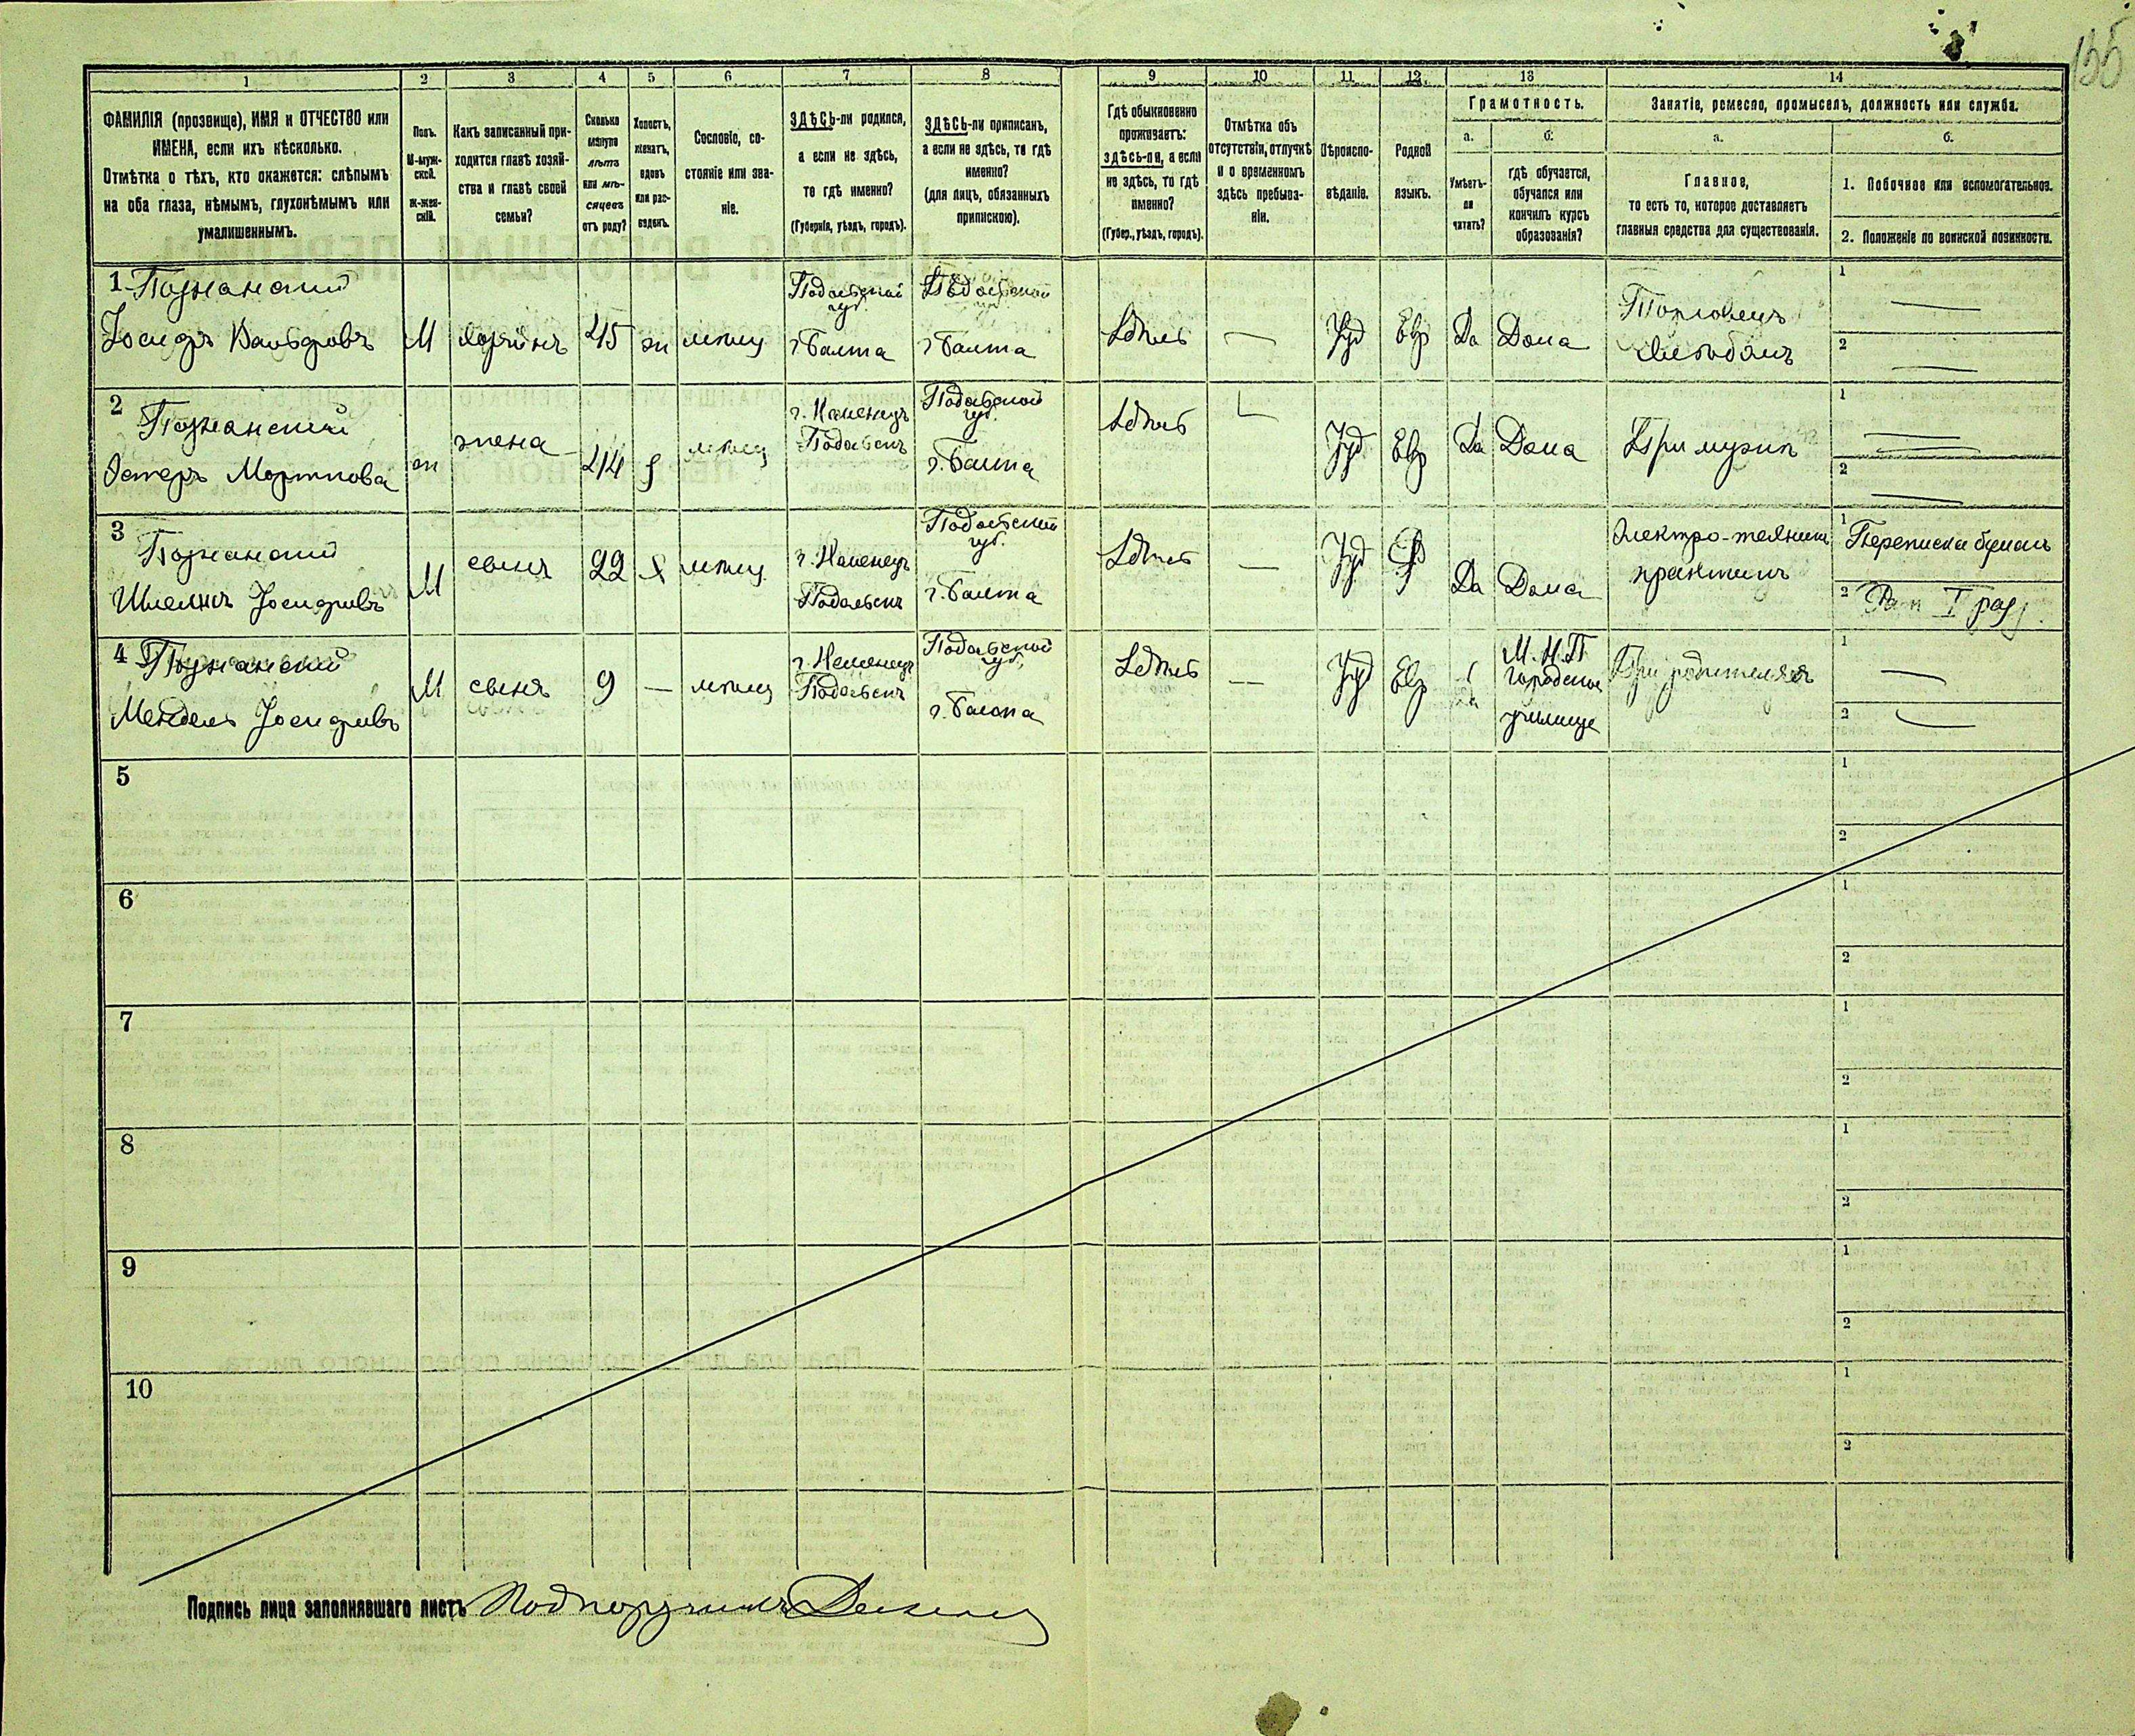 135
1 2 3 4 5 6 7 8 9 10 11 12 13 14
ФАМИЛІЯ (прозвище), ИМЯ и ОТЧЕСТВО или
ИМЕНА, если ихъ нѣсколько.
Отмѣтка о тѣхъ, кто окажется: слѣпымъ
на оба глаза, нѣмымъ, глухонѣмымъ или
умалишеннымъ.
Полъ.
М-муж-
ской.
Ж-жен-
скій.
Какъ записанный при-
ходится главѣ хозяй-
ства и главѣ своей
семьи?
Сколько
минуло
лѣтъ
или мѣ-
сяцевъ
отъ роду?
Холостъ,
женатъ,
вдовъ
или раз-
веденъ.
Сословіе, со-
стояніе или зва-
ніе.
ЗДѢСЬ-ли родился,
а если не здѣсь,
то гдѣ именно?
(Губернія, уѣздъ, городъ).
ЗДѢСЬ-ли приписанъ,
а если не здѣсь, то гдѣ
именно?
(для лицъ, обязанныхъ
припискою).
Гдѣ обыкновенно
проживаетъ:
здѣсь-ли, а если
не здѣсь, то гдѣ
именно?
(Губер., уѣздъ, городъ).
Отмѣтка объ
отсутствіи, отлучкѣ
и о временномъ
здѣсь пребыва-
ніи.
Вѣроиспо-
вѣданіе.
Родной
языкъ.
Грамотность.
а.
Умѣетъ-
ли
читать?
б.
гдѣ обучается,
обучался или
кончилъ курсъ
образованія?
Занятіе, ремесло, промыселъ, должность или служба.
а.
Главное,
то есть то, которое доставляетъ
главныя средства для существованія.
б.
1. Побочное или вспомогательное.
2. Положеніе по воинской повинности.
1 Познанский
Іосифъ Вольфовъ
М
хозяинъ
45
ж
мѣщ
Подольской
губ.
г. Балта
Подольской
губ.
г. Балта
Здѣсь
—
Іуд
Евр
Да
Дома
Торговецъ
1 —
2 —
2 Познанский
Эстеръ
ж
жена
44
мѣщ
г. Каменецъ
Подольскъ
Подольской
губ.
г. Балта
Здѣсь
Іуд
Евр
Да
Дома
При мужѣ
1 —
2 —
3 Познанский
Іосифовъ
М
сынъ
22
х
мѣщ
г. Каменецъ
Подольскъ
Подольской
губ.
г. Балта
Здѣсь
—
Іуд
Да
Дома
Электро-техникъ
практикъ
1 Переписка бумагъ
2
4 Познанский
Мендель Іосифовъ
М
сынъ
9
—
мѣщ
г. Каменецъ
Подольскъ
Подольской
губ.
г. Балта
Здѣсь
—
Іуд
Евр
М.Н.П
Городское
училище
При родителяхъ
1 —
2 —
5
1
2
6
1
2
7
1
2
8
1
2
9
1
2
10
1
2
Подпись лица заполнявшаго листъ Подпоручикъ